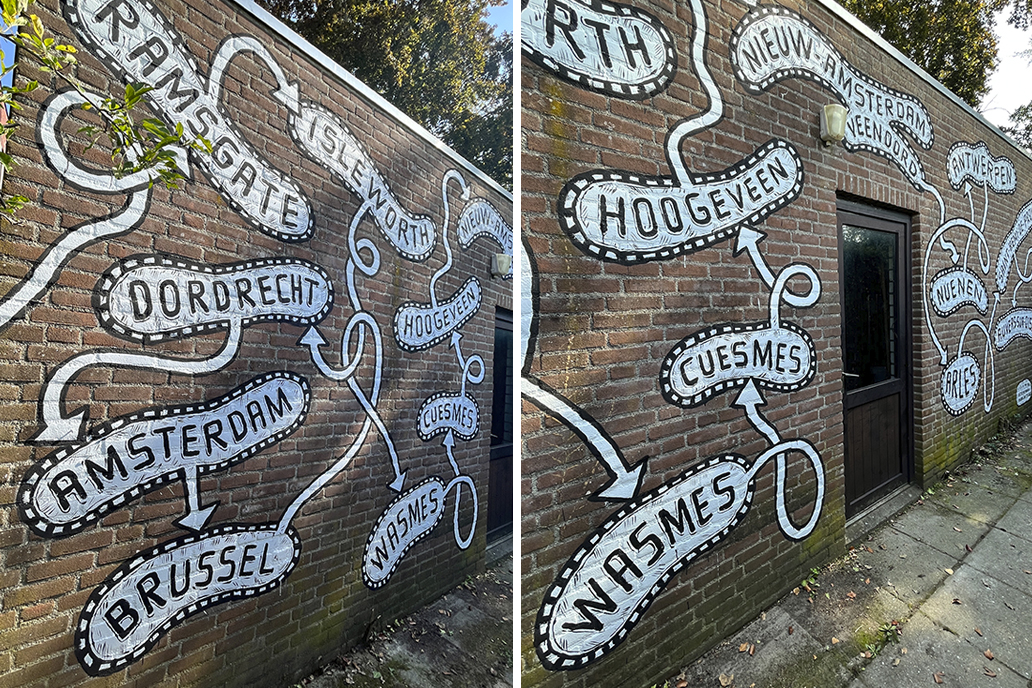 RAMSGATE
ISLEWORTH
NIEUW-AMS
DORDRECHT
HOOGEVEEN
AMSTERDAM
CUESMES
BRUSSEL
WASMES
RTH
NIEUW-AMSTERDAM
VEENOORD
ANTWERPEN
HOOGEVEEN
NUENEN
CUESMES
ARLES
WASMES